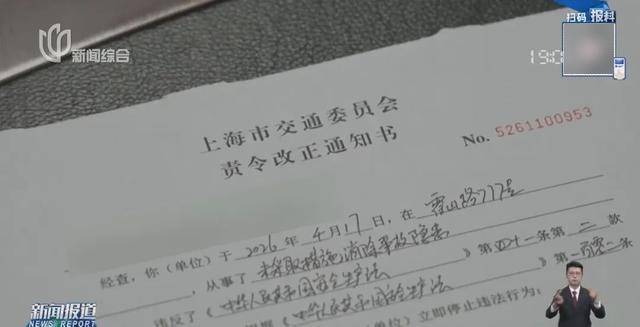 新闻综合
扫码 报料
19:0
上海市交通委员会
责令改正通知书
No. 5261100953
经查,你(单位)于 2026 年 4 月 17 日,在 霍山路777号
,从事了 未采取措施消除事故隐患
违反了《中华人民共和国安全生产法 》第 四十一 条第 二 款
《中华人民共和国安全生产法 》第 一百零二 条
单位)立即停止违法行为:
新闻报道
NEWS REPORT